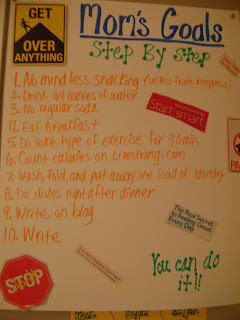 GET
OVER
ANYTHING
Mom's Goals
Step By Step
1. No mindless snacking (unless fruits & veggies)
2. Drink 64 ounces of water
3. No regular soda
4. Eat Breakfast
5. Do some type of exercise for 30 min
6. Count calories on Livestrong.com
7. Wash, fold, and put away one load of laundry
8. Do dishes right after dinner
9. Write on blog
10. Write
Start smart.
The Real Secret
to Feeling Great
Every Day
STOP
You can do
it!!